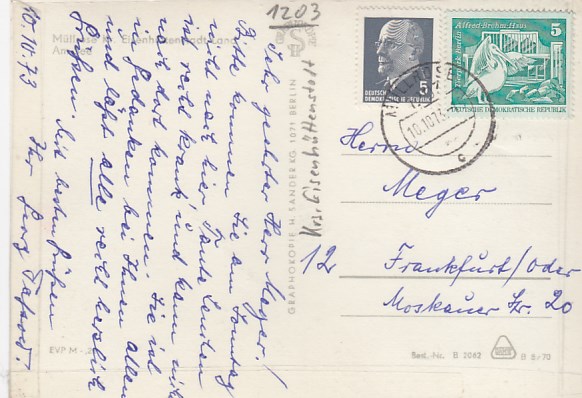 1203
Müllrose Kr. Eisenhüttenstadt-Land
10.10.73
Sehr geehrter Herr Meger!
Bitte kommen Sie am Sonntag
nicht nach hier. Tante
ist recht krank und kann nicht
mit dort kommen. Sie ist
in Gedanken bei Ihnen allen
und läßt alle recht herzlich
grüßen. Mit besten Grüßen
Ihr Georg
GRAPHOKOPIE H. SANDER KG 1071 BERLIN
Krs. Eisenhüttenstadt
DEUTSCHE
DEMOKRATISCHE REPUBLIK
5
Alfred-Brehm-Haus
Tierpark Berlin
5
DEUTSCHE DEMOKRATISCHE REPUBLIK
MÜLLROSE
10.10.73
c
Herrn
Meger
12 Frankfurt/Oder
Moskauer Str. 20
EVP M -,20
Best.-Nr. B 2062
B 8/70